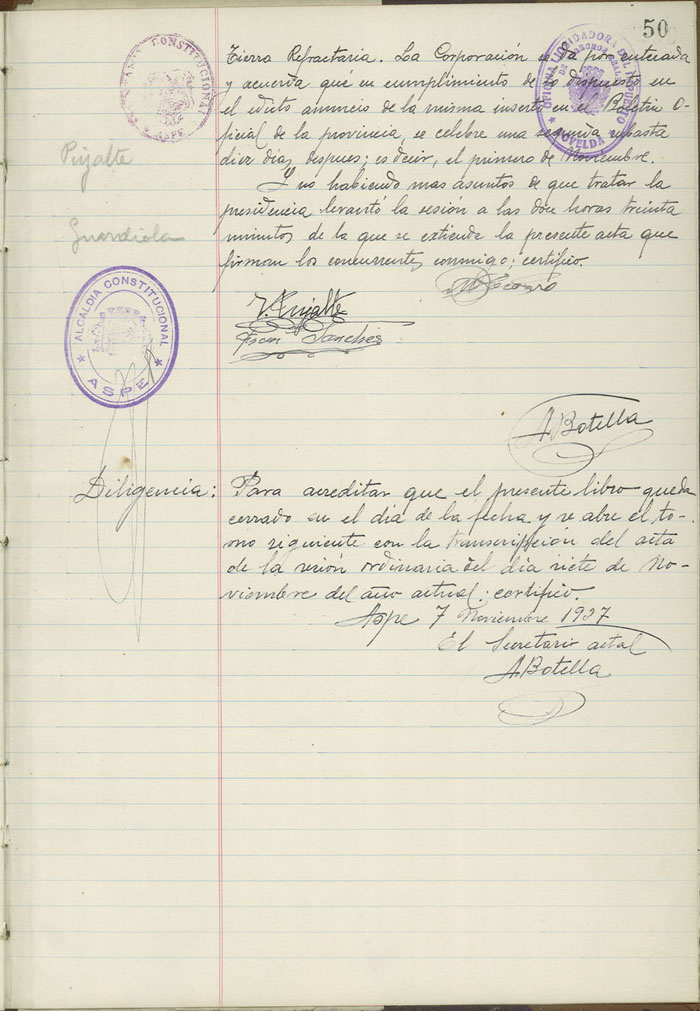 50
AYUNTAMIENTO CONSTITUCIONAL
ASPE
OFICINA LIQUIDADORA DEL IMPUESTO
NOVELDA
Tierra Refractaria. La Corporación se da por enterada
y acuerda que en cumplimiento de lo dispuesto en
el edicto anuncio de la misma inserto en el Boletin O-
ficial de la provincia, se celebre una segunda subasta
diez dias despues; es decir, el primero de Noviembre.
Y no habiendo mas asuntos de que tratar la
presidencia levantó la sesión a las doce horas treinta
minutos de la que se extiende la presente acta que
firman los concurrentes conmigo; certifico.
Pujalte
Guardiola
V. Pujalte
Juan Sanches
ALCALDIA CONSTITUCIONAL
ASPE
A Botella
Diligencia: Para acreditar que el presente libro queda
cerrado en el dia de la fecha y se abre el to-
mo siguiente con la transcripcion del acta
de la sesión ordinaria del dia siete de No-
viembre del año actual: certifico.
Aspe 7 Noviembre 1937
El Secretario actal
A Botella